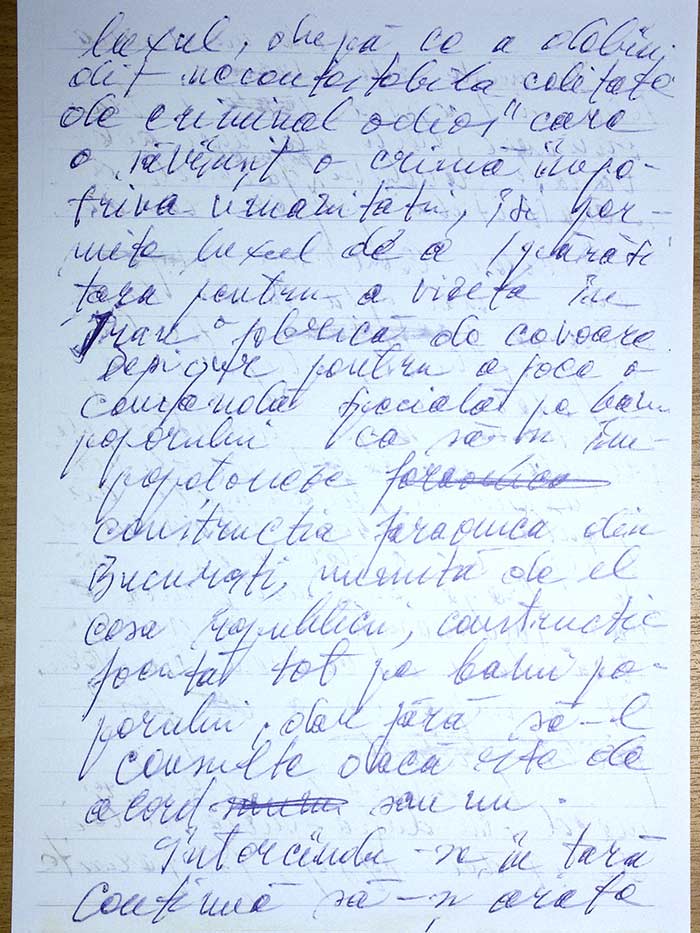 luxul, după ce a dobîn-
dit necontestabila calitate
de criminal odios" care
a săvîrșit o crimă împo-
triva umanitatii, își per-
mite luxul de a părăsi
țara pentru a vizita în
Iran "fabrica de covoare
desigur pentru a face o
comandă specială pe banii
poporului ca să-și îm-
popotoneze
constructia faraonică din
București, numită de el
casa republicii, constructie
facută tot pe banii po-
porului, dar fără să-l
consulte dacă este de
acord sau nu.
Întorcîndu-se în țară
continuă să-și arate